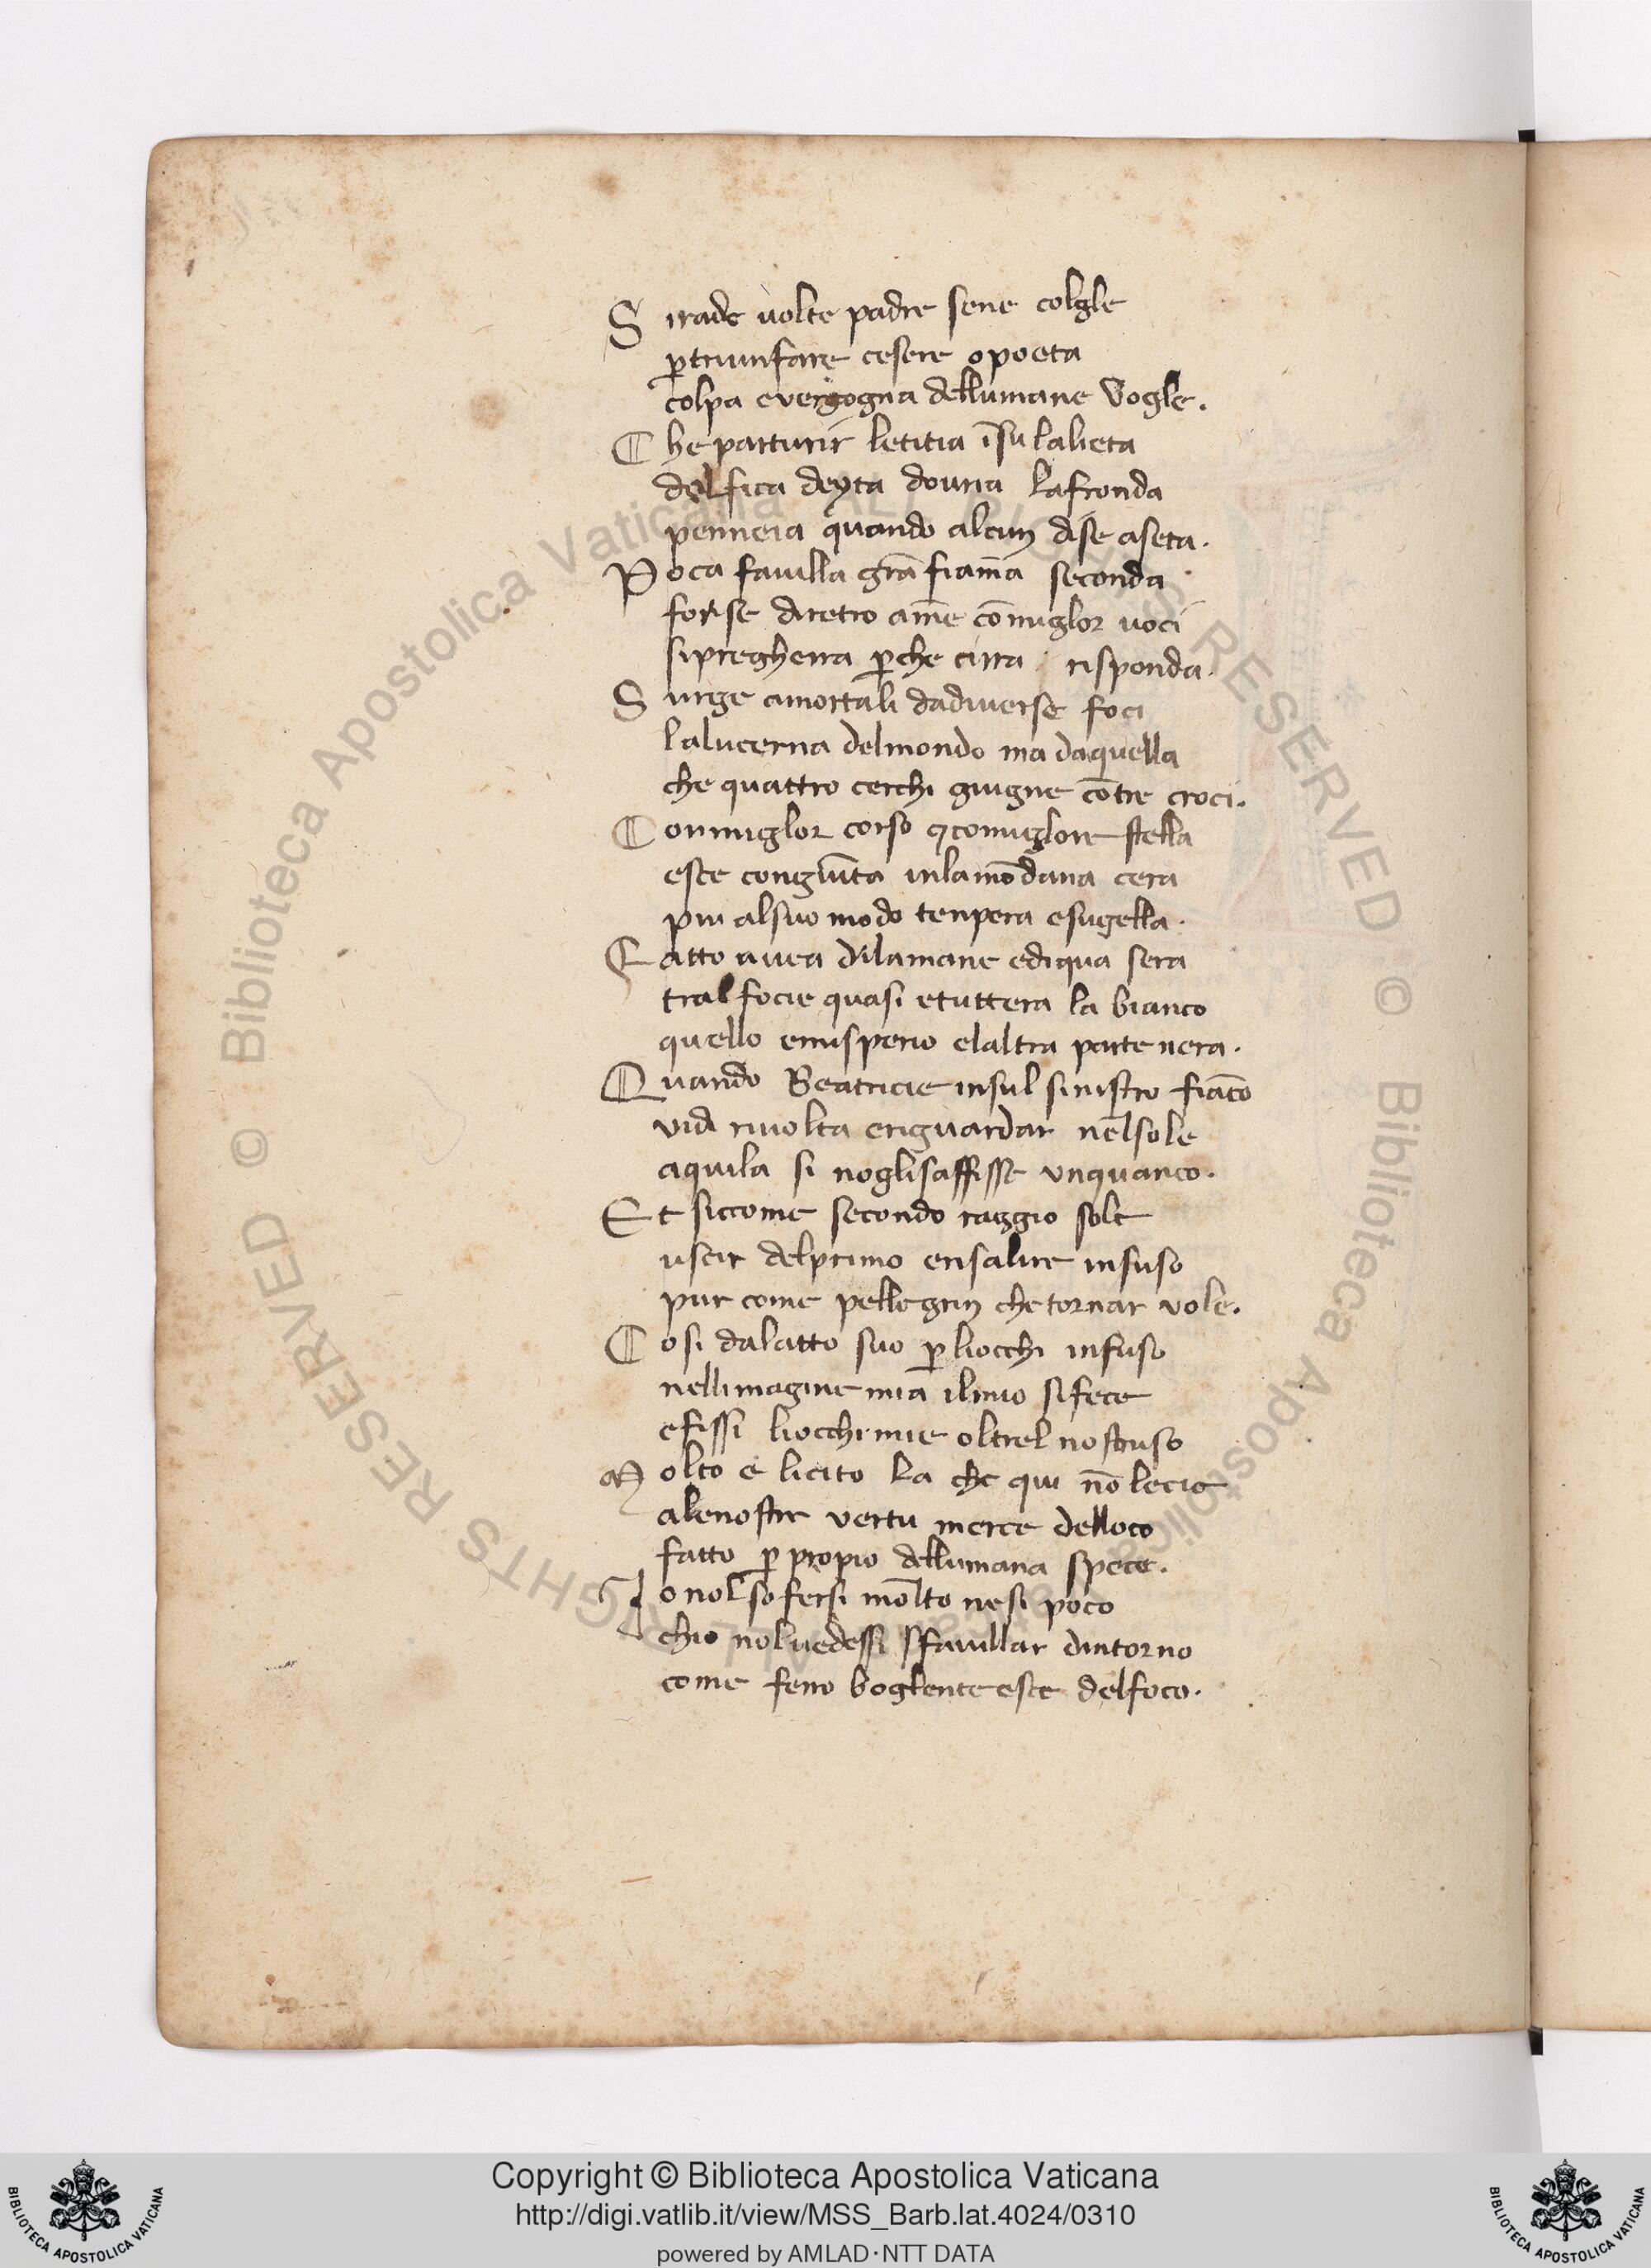 S irade uolte padre sene colgle
ꝑtriunfare cesere opoeta
colpa evergogna dellumane Vogle.
C he parturir letitia īsu lalieta
delfica deyta douria lafronda
penneia quando alcun dise aseta.
P oca fauilla grā fiam̄a seconda
forse diretro am̄e cōmiglor uoci
sipregherra ꝑche cirra risponda.
S urge amortali dadiuerse foci
lalucerna delmondo ma daquella
che quattro cerchi giugne cōtre croci.
C onmiglor corso ⁊comiglore stella
esce congiūta inlamōdana cera
piu alsuo modo tenpera esugella.
F atto auea dilamane ediqua sera
tral focie quasi etuttera la bianco
quello emisperio elaltra parte nera.
Q uando Beatricie insul sinistro fiāco
vidi riuolta eriguardar nelsole
aquila si noglisaffisse unquanco.
Et siccome secondo raggio sole
uscir delprimo erisalire insuso
pur come pellegrin chetornar vole.
C osi dalatto suo ꝑliocchi infuso
nellimagine mia ilmio sifece
efissi liocchi mie oltrel nostruso
M olto e licito la che qui nō lecie
alenostre vertu merce delloco
fatto ꝑ propio dellumana spece.
I o nol sofersi molto nesi poco
chio noluedessi sfauillar dintorno
come ferro boglente esce delfoco.
© Biblioteca Apostolica Vaticana ALL RIGHTS RESERVED © Biblioteca Apostolica Vaticana ALL RIGHTS RESERVED
Copyright © Biblioteca Apostolica Vaticana
http://digi.vatlib.it/view/MSS_Barb.lat.4024/0310
powered by AMLAD·NTT DATA
BIBLIOTECA APOSTOLICA VATICANA
BIBLIOTECA APOSTOLICA VATICANA